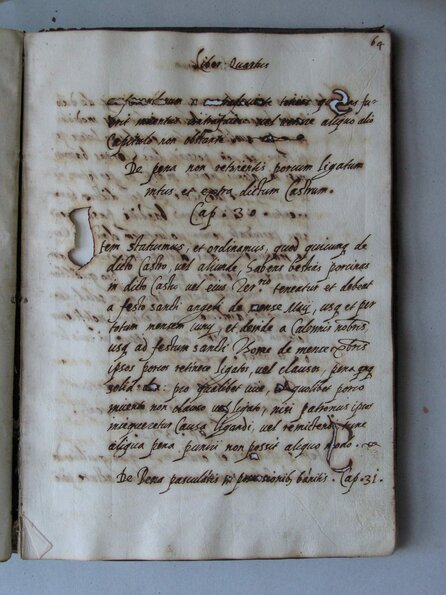 64
Liber Quartus
fuerit inventus vel aliquo alio
Capitulo non obstante
De pena non retinentis porcum ligatum
intus et extra dictum Castrum.
Cap. 30
Item statuimus, et ordinamus, quod quicunq de
dicto Castro, vel aliunde, habens bestias porcinas
in dicto Castro vel eius Ter.rio teneatur et debeat
a festo sancti angeli de mense Maij, usq et per
totum mensem Iunij, et deinde a Calendis
usq ad festum sancti de mense
ipsos porcos retinere ligatos, vel clausos, pena
solid. pro qualibet vice, et quolibet porco
invento non clauso vel ligato, nisi patronus ipse
Causa ligandi, vel tunc
aliqua pena puniri non possit aliquo modo.
De Pena pasculantis in bannitis. Cap. 31.